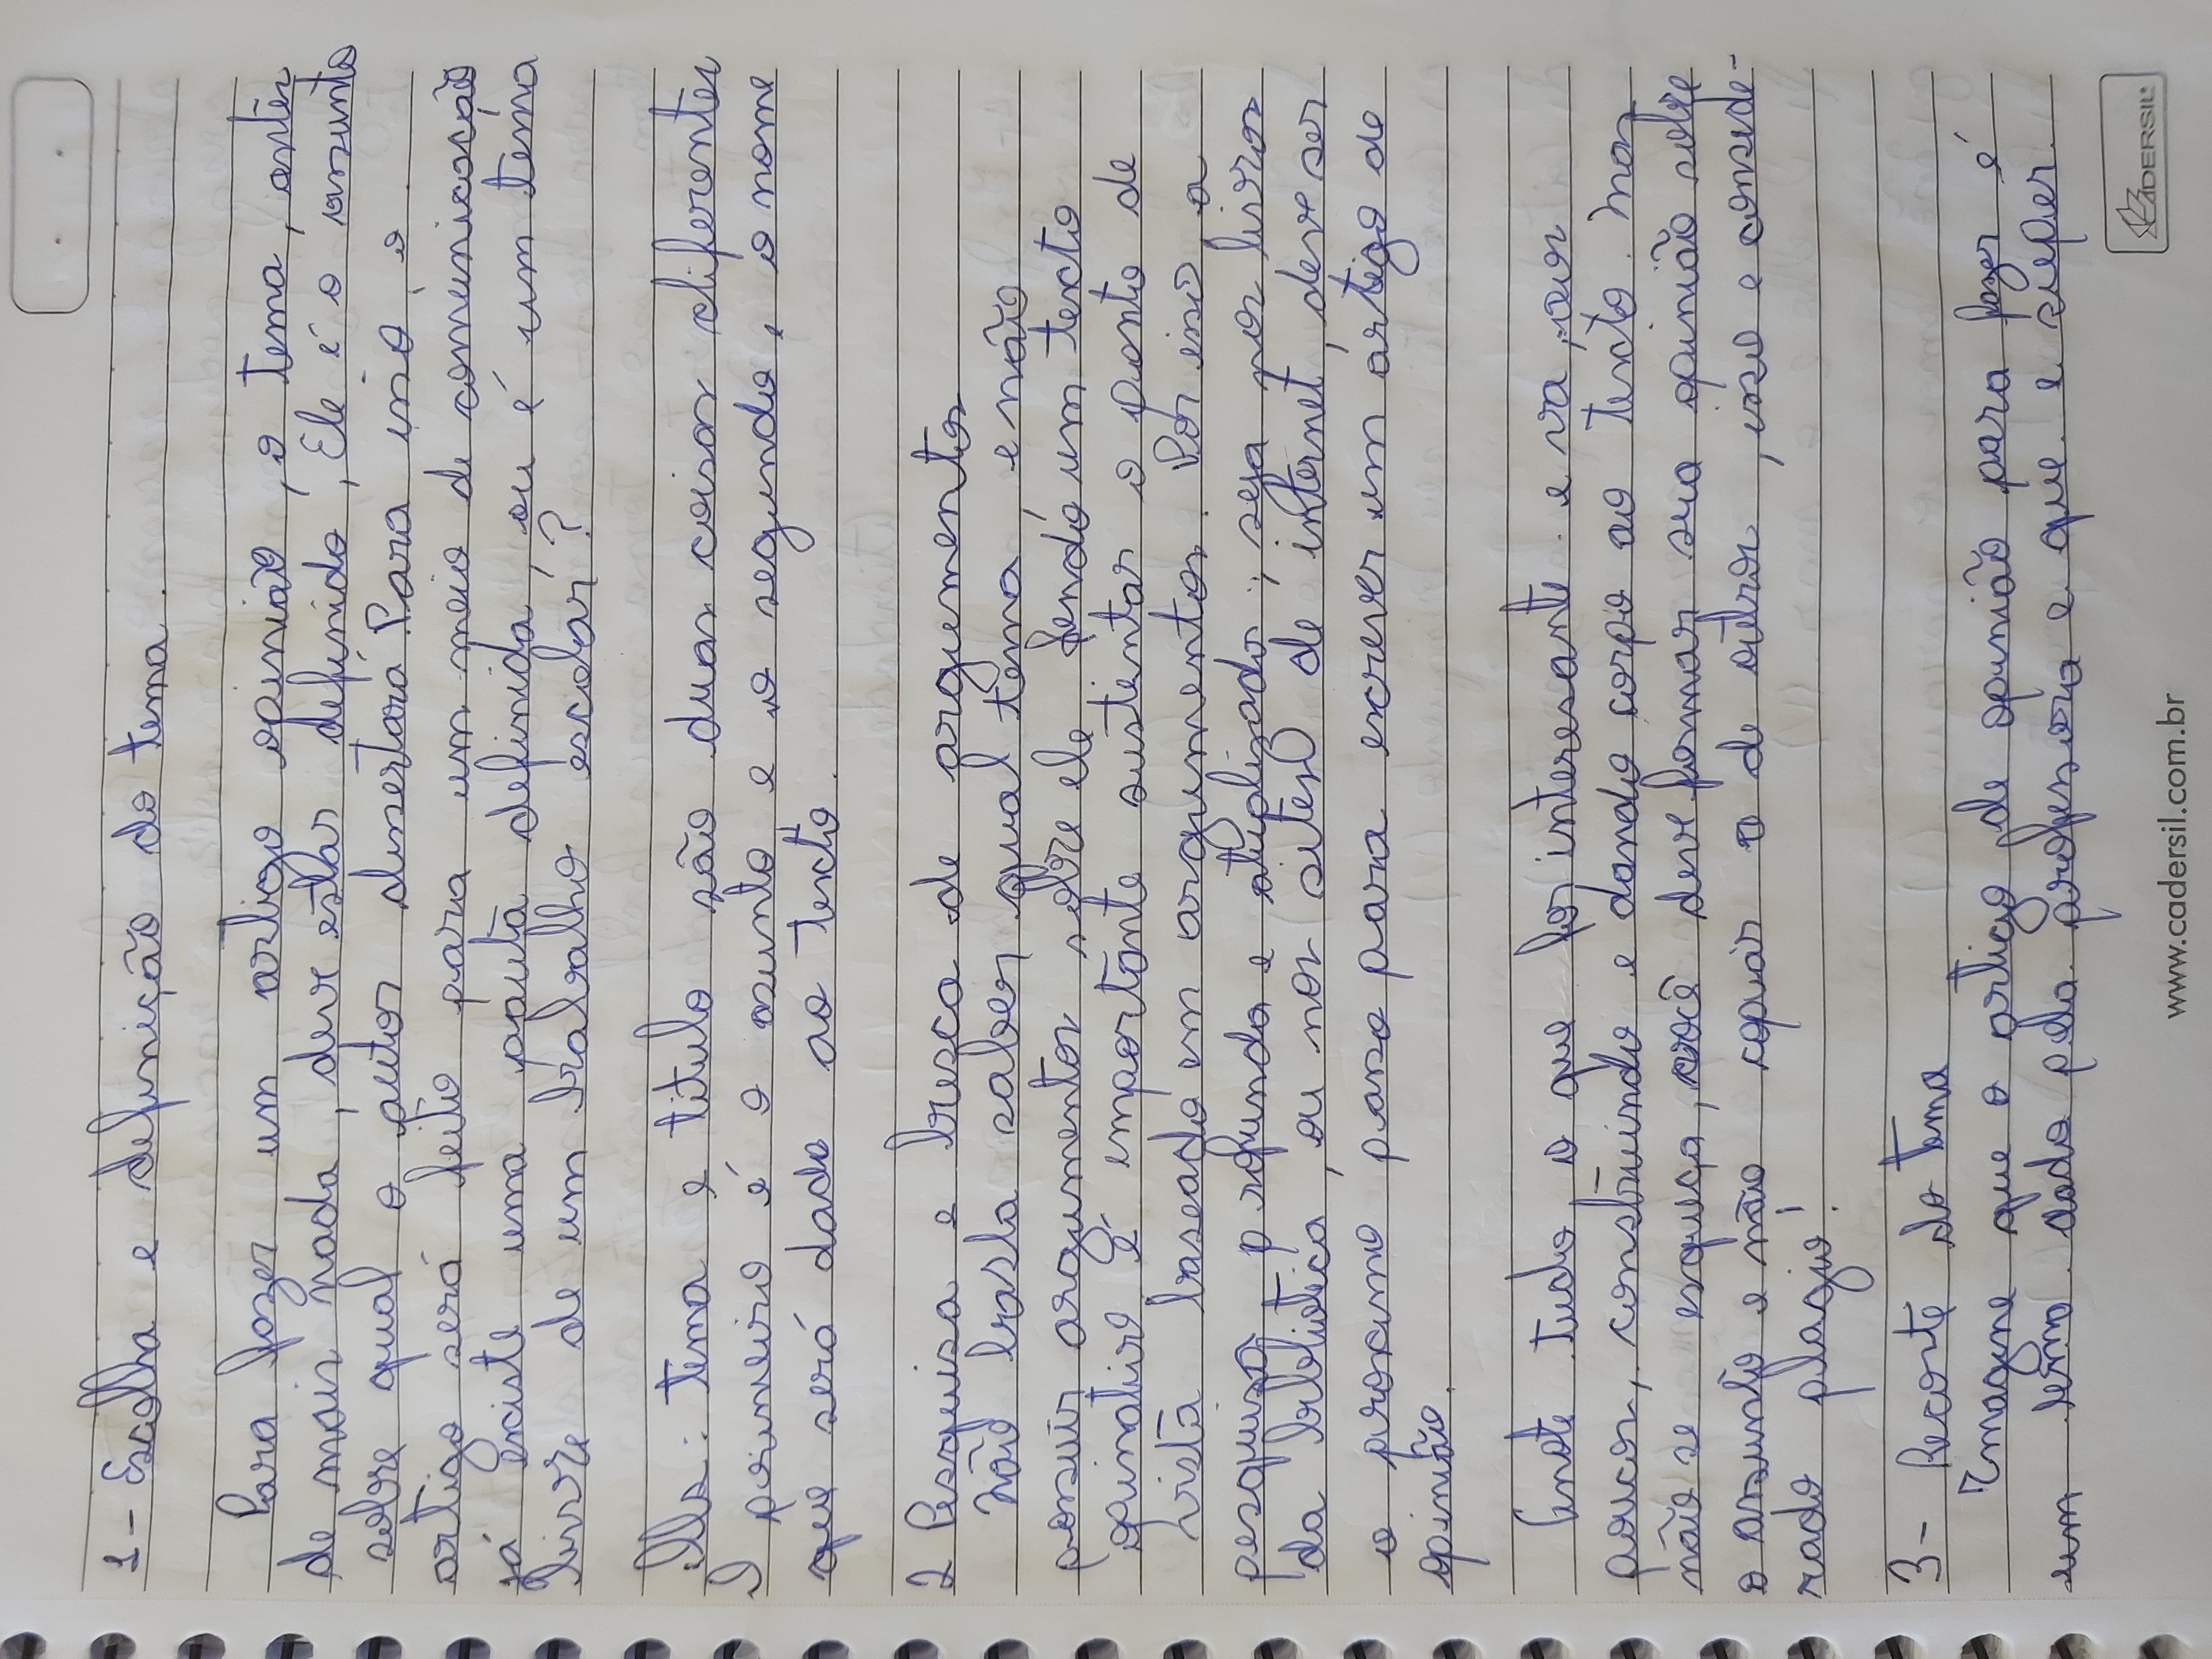 1 - Escolha e definição do tema.
Para fazer um artigo opinião, o tema, antes
de mais nada, deve estar definido, Ele é o assunto
sobre qual o autor dissertará. Para isso, o
artigo será feito para um meio de comunicação
já existe uma pauta definida, ou é um tema
livre de um trabalho escolar?
tema e titulo são duas coisas diferentes
O primeiro é o assunto, e o segundo, o nome
que será dado ao texto.
2 Pesquisa e busca de argumentos
Não basta saber qual tema, e não
possuir argumentos sobre ele. Sendo um texto
opinativo, é importante sustentar o ponto de
vista baseado em argumentos. Por isso, a
pesquisa, profunda e atualizada, seja nos livros
da biblioteca, ou nos sites de internet, deve ser
o proximo passo para escrever um artigo de
opinião.
Anote tudo, o que for interesante e va, aos
poucos, construindo e dando corpo ao texto. Mas
não se esqueça, você deve formar sua opinião sobre
o assunto e não copiar o de outros, isso e conside-
rado plagio!
3- Recorte do tema
Imagine que o artigo de opinião para fazer é
um tema dado pela professora e que e super
CADERSIL
www.cadersil.com.br